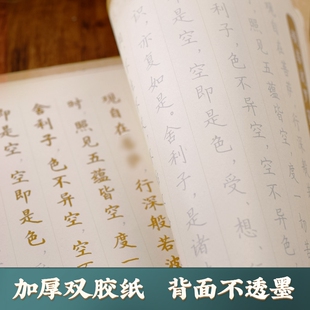 见五蕴皆空,度一切
子,色不异空,空不异
是空,空即是色,受,想,
识,亦复如是。舍利子,是诸
观自在
,行深般若波
时,照见五蕴皆空,度一
舍利子,色不异空,空不
即是空,空即是色,
加厚双胶纸 背面不透墨